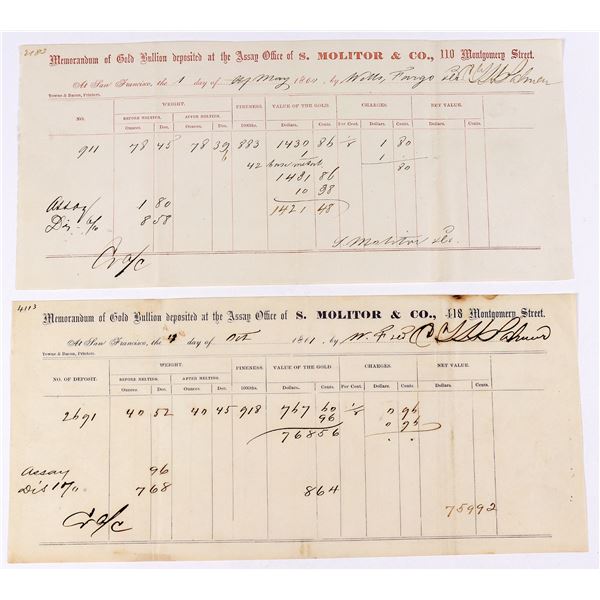 2183
Memorandum of Gold Bullion deposited at the Assay Office of S. MOLITOR & CO., 110 Montgomery Street.
At San Francisco, the 1 day of May 1861 by Wells, Fargo
Towne & Bacon, Printers.
NO. WEIGHT. FINENESS. VALUE OF THE GOLD CHARGES. NET VALUE.
BEFORE MELTING. AFTER MELTING. 1000ths.
Ounces. Dec. Ounces. Dec. Dollars. Cents. Per Cent. Dollars. Cents. Dollars. Cents.
911 78 45 78 883 1430 86 1/8 1 80
1 1
42 base metal 80
1431 86
10 38
Assay 1 80 1421 48
Dis 8 58
S. Molitor & Co.
Cr a/c
4113
Memorandum of Gold Bullion deposited at the Assay Office of S. MOLITOR & CO., 118 Montgomery Street.
At San Francisco, the 4 day of Oct 1861, by W. F
Towne & Bacon, Printers.
NO. OF DEPOSIT. WEIGHT. FINENESS. VALUE OF THE GOLD CHARGES. NET VALUE.
BEFORE MELTING. AFTER MELTING. 1000ths.
Ounces. Dec. Ounces. Dec. Dollars. Cents. Per Cent. Dollars. Cents. Dollars. Cents.
2691 40 52 40 45 918 767 60 1/8 0 96
96 0 96
768 56
Assay 96
Dis 1% 7 68 8 64
759 92
Cr a/c